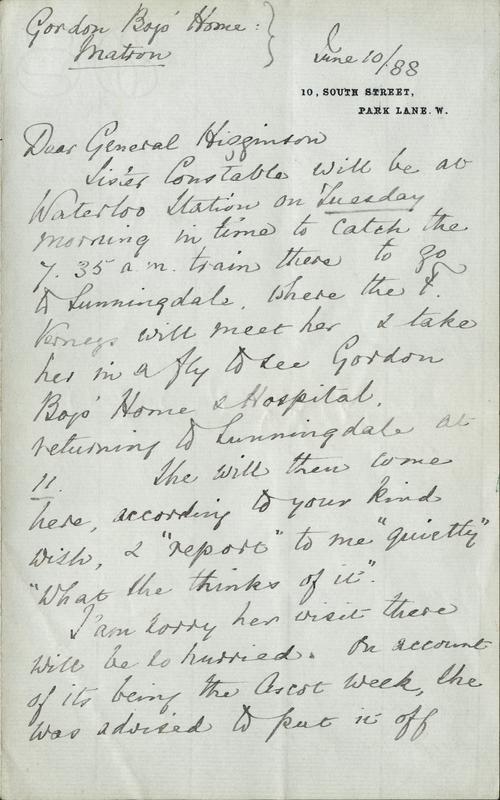 Gordon Boys' Home:
Matron
June 10/88
10, SOUTH STREET,
PARK LANE. W.
Dear General Higginson
Sister Constable will be at
Waterloo Station on Tuesday
morning in time to catch the
7.35 a.m. train there to go
to Sunningdale, where the F.
Verneys will meet her & take
her in a fly to see Gordon
Boys' Home & Hospital,
returning to Sunningdale at
11. She will then come
here, according to your kind
wish, & "report" to me "quietly"
"what she thinks of it".
I am sorry her visit there
will be so hurried. On account
of its being the Ascot week, she
was advised to put it off